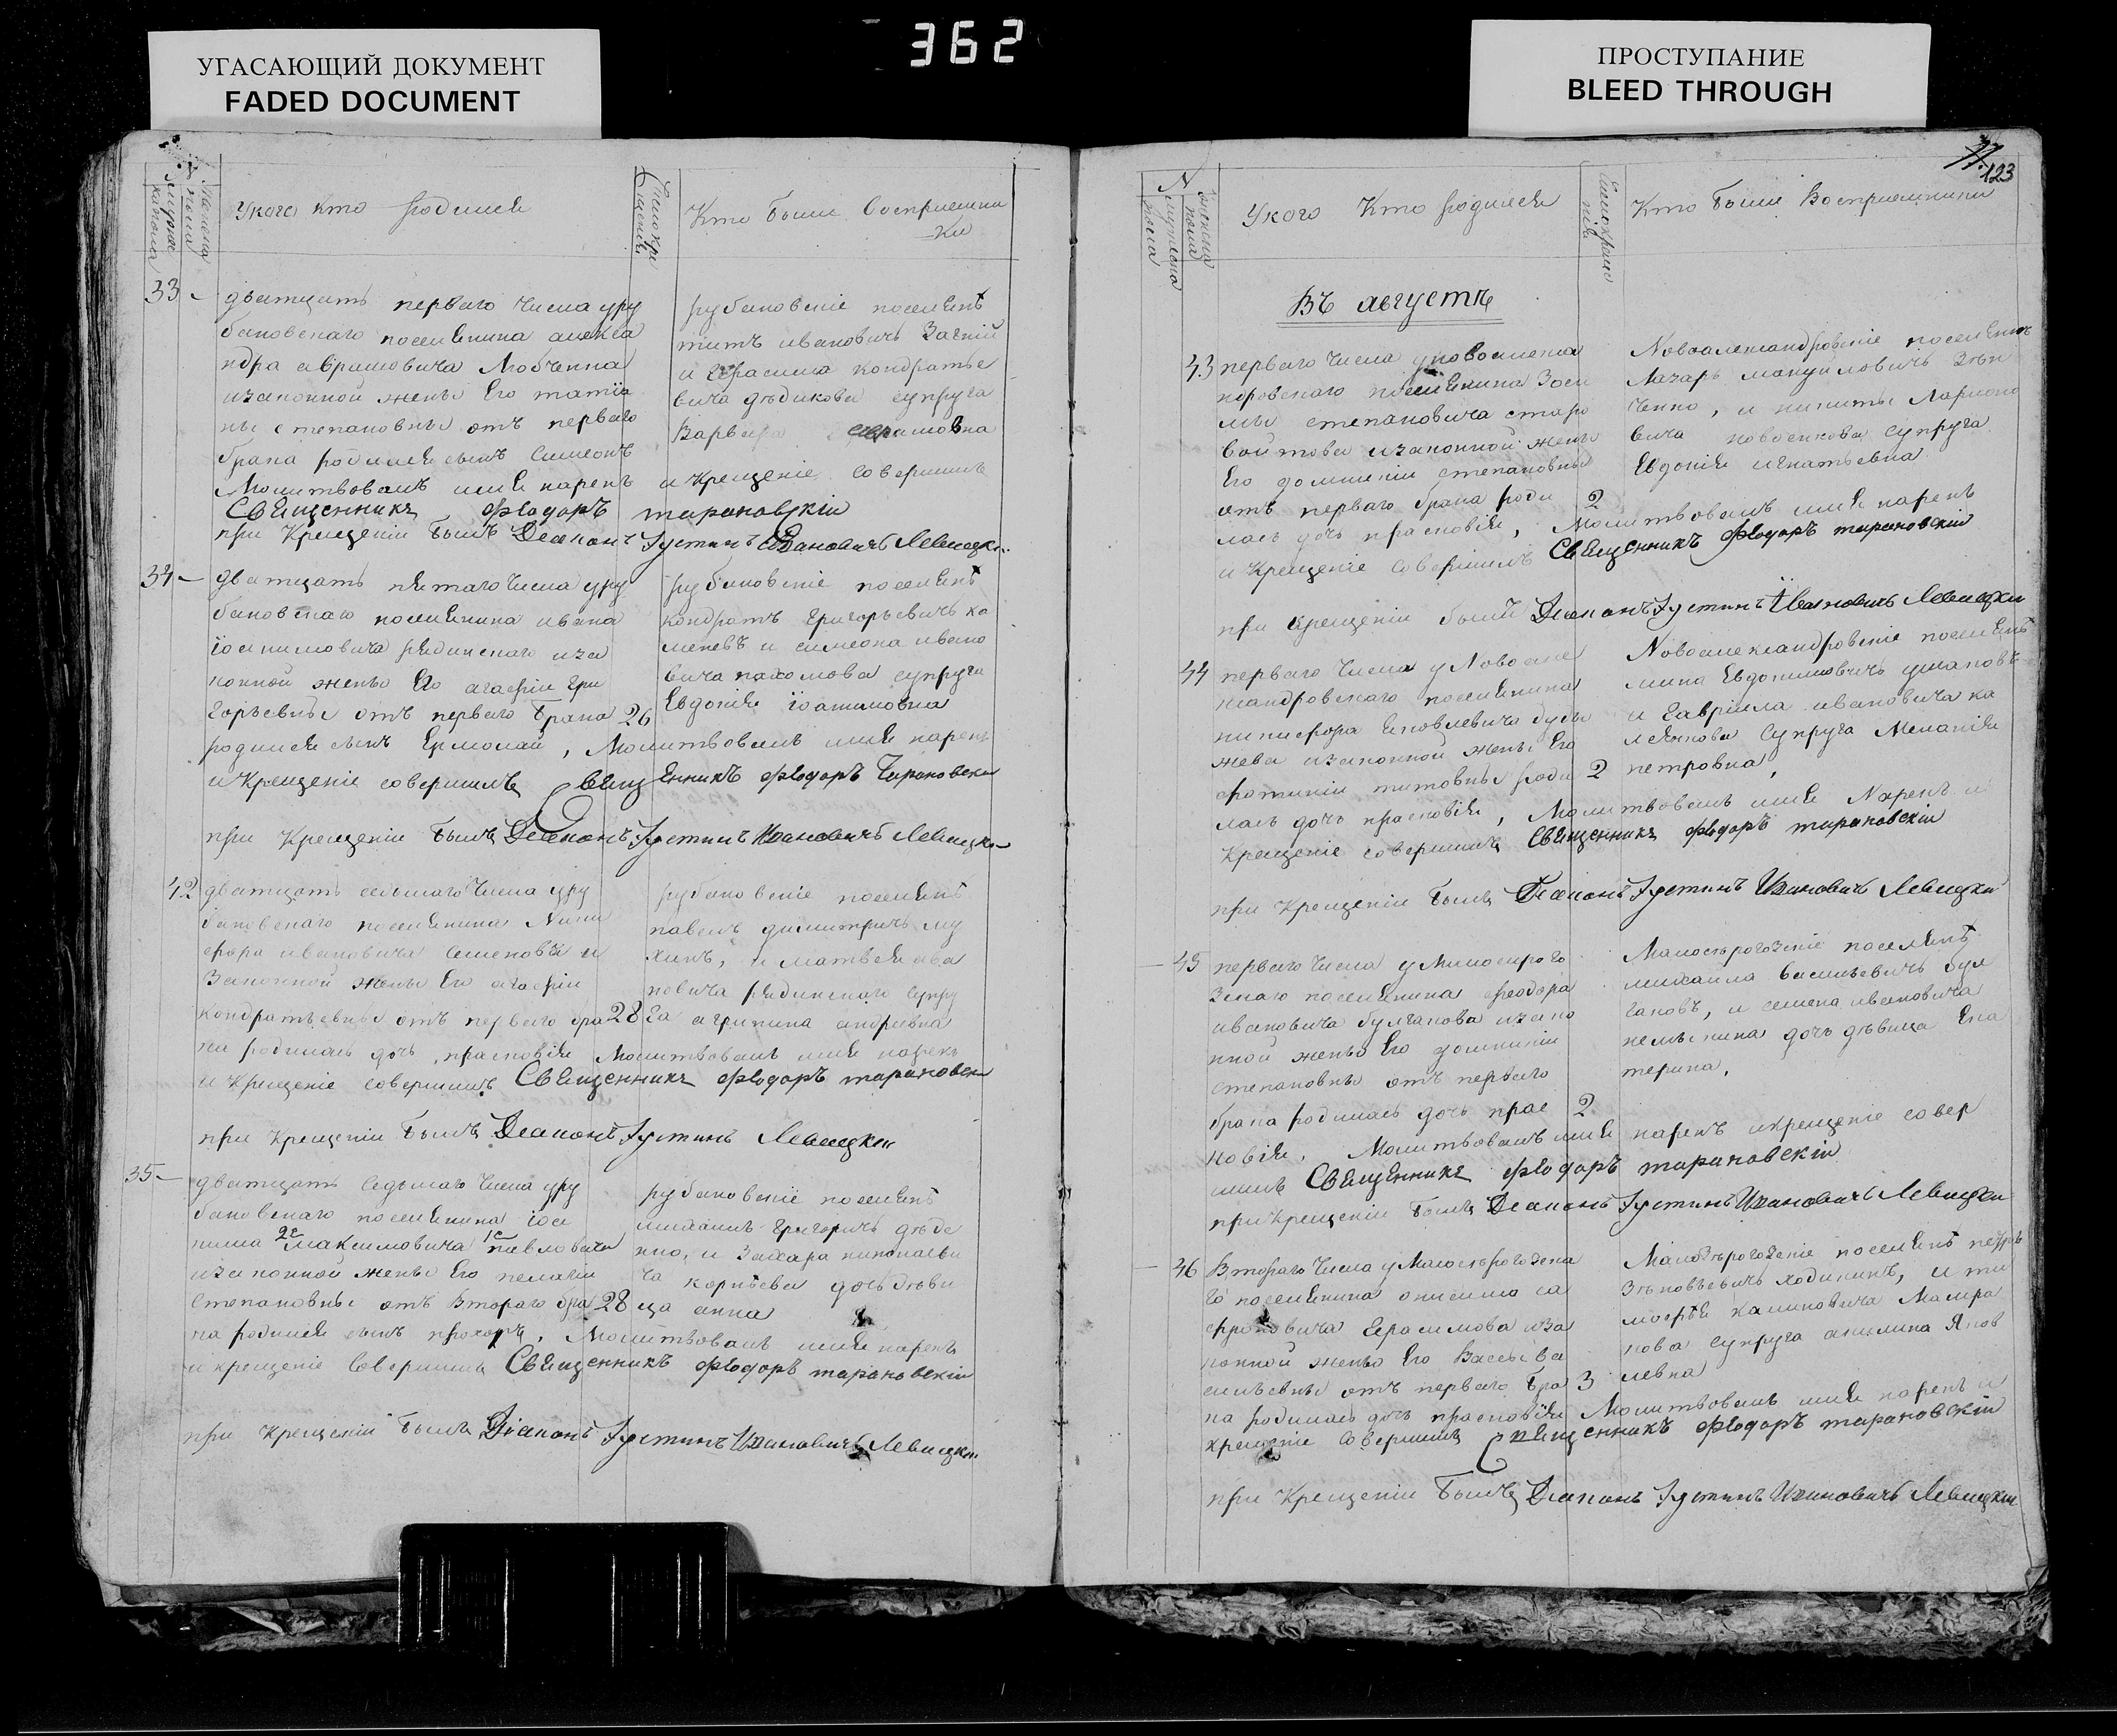 УГАСАЮЩИЙ ДОКУМЕНТ
FADED DOCUMENT
362
ПРОСТУПАНИЕ
BLEED THROUGH
У кого кто родился
Кто были восприемни
ки
33
дватцать перваго числа у ру
бановскаго поселянина алекса
ндра аврамовича Лобченка
изаконной жены Его татїа
ны степановны отъ перваго
брака родился сынъ Симеонъ
Молитвовалъ имя нарекъ
Священникъ Фѣодоръ тарановскїй
при Крещенїи былъ Дїаконъ Іустинъ Ивановичъ Левицкїй
рубановскіе поселянѣ
титъ ивановичъ
и Герасима кондратье
вича дѣдикова супруга
Варвара аврамовна
и крещенїе совершилъ
34
дватцать пятаго числа у ру
бановскаго поселянина ивана
їоакимовича рядинскаго иза
конной жены Его агафїи гри
горьевны отъ перваго брака 26
родился сынъ Ермолай, Молитвовалъ имя нарекъ
и Крещенїе совершилъ Священникъ Фѣодоръ Тарановскїй
при Крещенїи былъ Дїаконъ Іустинъ Ивановичъ Левицкїй
рубановскіе поселянѣ
кондратъ Григорьевичъ ка
меневъ и симеона ивано
вича пахомова супруга
Евдокїя їоакимовна
42
дватцать седьмаго числа у ру
бановскаго поселянина Ники
фора ивановича Семенова и
Законной жены Его агафїи
кондратьевны отъ перваго бра 28
ка родилась дочь прасковїя Молитвовалъ имя нарекъ
и крещенїе совершилъ Священникъ Фѣодоръ тарановскїй
при Крещенїи былъ Дїаконъ Іустинъ Левицкїй
рубановскіе поселянѣ
павелъ димитричъ му
хинъ, и матвѣя ива
новича рядинскаго супру
га агрипина андрѣевна
35
дватцать седьмаго числа у ру
бановскаго поселянина їоа
кима 2е Максимовича 1е павловича
изаконной жены Его пелагїи
Степановны отъ втораго бра 28
ка родился сынъ прохоръ, Молитвовалъ имя нарекъ
и крещенїе Совершилъ Священникъ Фѣодоръ тарановскїй
при Крещенїи былъ Дїаконъ Іустинъ Ивановичъ Левицкїй
рубановскїе поселянѣ
михаилъ Григоричъ дѣде
нко, и Захара николаеви
ча корнѣева дочь дѣви
ца анна
123
У кого Кто родился
Кто были Восприемники
Въ августѣ
43
перваго числа у новоалекса
ндровскаго поселянина Зоси
мы степановича старо
войтова изаконной жены
Его домникїи степановны
отъ перваго брака роди 2
лась дочь прасковїя, Молитвовалъ имя нарекъ
и крещенїе совершилъ Священникъ Фѣодоръ тарановскїй
при крещенїи былъ Дїаконъ Іустинъ Ивановичъ Левицкїй
Новоалександровскїе поселянѣ
Лазарь мануиловичъ Зѣн
ченко, и никиты Ларионо
вича новосикова супруга
Евдокїя игнатьевна
44
перваго числа у Новоале
ксандровскаго поселянина
никифора Яковлевича
изаконной жены Его
фотинїи титовны роди 2
лась дочь прасковїя, Молитвовалъ имя Нарекъ и
Крещенїе совершилъ Священникъ Фѣодоръ тарановскїй
при Крещенїи былъ Дїаконъ Іустинъ Ивановичъ Левицкїй
Новоалександровскїе поселянѣ
мина Евдокимовичъ ушаковъ
и Гаврїила ивановича ка
супруга Меланїя
петровна,
45
перваго числа у Малосѣрого
зскаго поселянина феодора
ивановича булгакова изако
нной жены Его домникїи
степановны отъ перваго
брака родилась дочь прас 2
ковїя, Молитвовалъ имя нарекъ и крещенїе совер
шилъ Священникъ Фѣодоръ тарановскїй
при крещенїи былъ Дїаконъ Іустинъ Ивановичъ Левицкїй
Малосѣрогозскїе поселянѣ
михаила васильевичъ бул
гаковъ, и семена ивановича
дочь дѣвица Ека
терина,
46
Втораго Числа у Малосѣрогозска
го поселянина анисима са
фроновича Герасимова иза
конной жены Его Вассы ва
сильевны отъ перваго бра 3
ка родилась дочь прасковїя Молитвовалъ имя нарекъ и
крещенїе совершилъ Священникъ Фѣодоръ тарановскїй
при Крещенїи былъ Дїаконъ Іустинъ Ивановичъ Левицкїй
Малосѣрогозскїе поселянѣ петръ
Зѣновьевичъ ходикинъ, и ти
мофѣя калиновича
супруга акилина Яков
левна